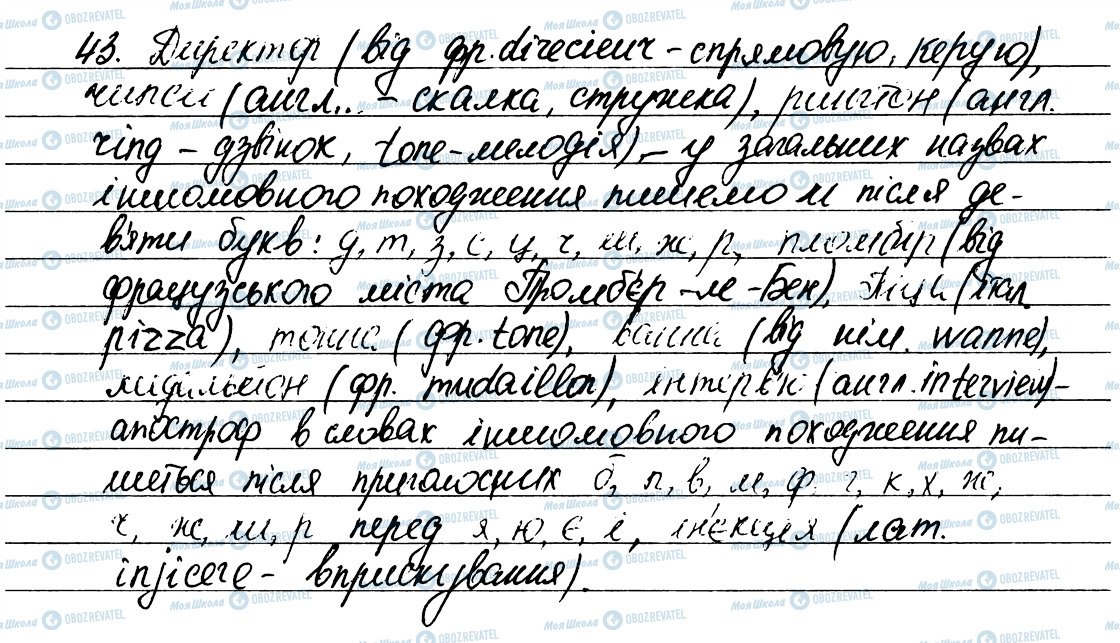 43. Директор (від фр. direcieur - спрямовую, керую),
чипси (англ.. - скалка, стружка), рингтон (англ.
ring - дзвінок, tone - мелодія), - у загальних назвах
іншомовного походження пишемо и після де-
в'яти букв: д, т, з, с, ц, ч, ш, ж, р, пломбір (від
французського міста Пломб'єр-ле-Бен), піца (італ.
pizza), тонна (фр. tone), ванна (від нім. wanne),
медальйон (фр. mudaillon), інтерв'ю (англ. interview) -
апостроф в словах іншомовного походження пи-
шеться після приголосних б, п, в, м, ф, г, к, х, ж,
ч, ж, ш, р перед я, ю, є, і, ін'єкція (лат.
injicere - вприскування).